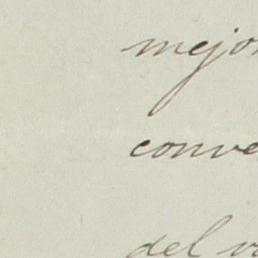 mejor
conve
del v